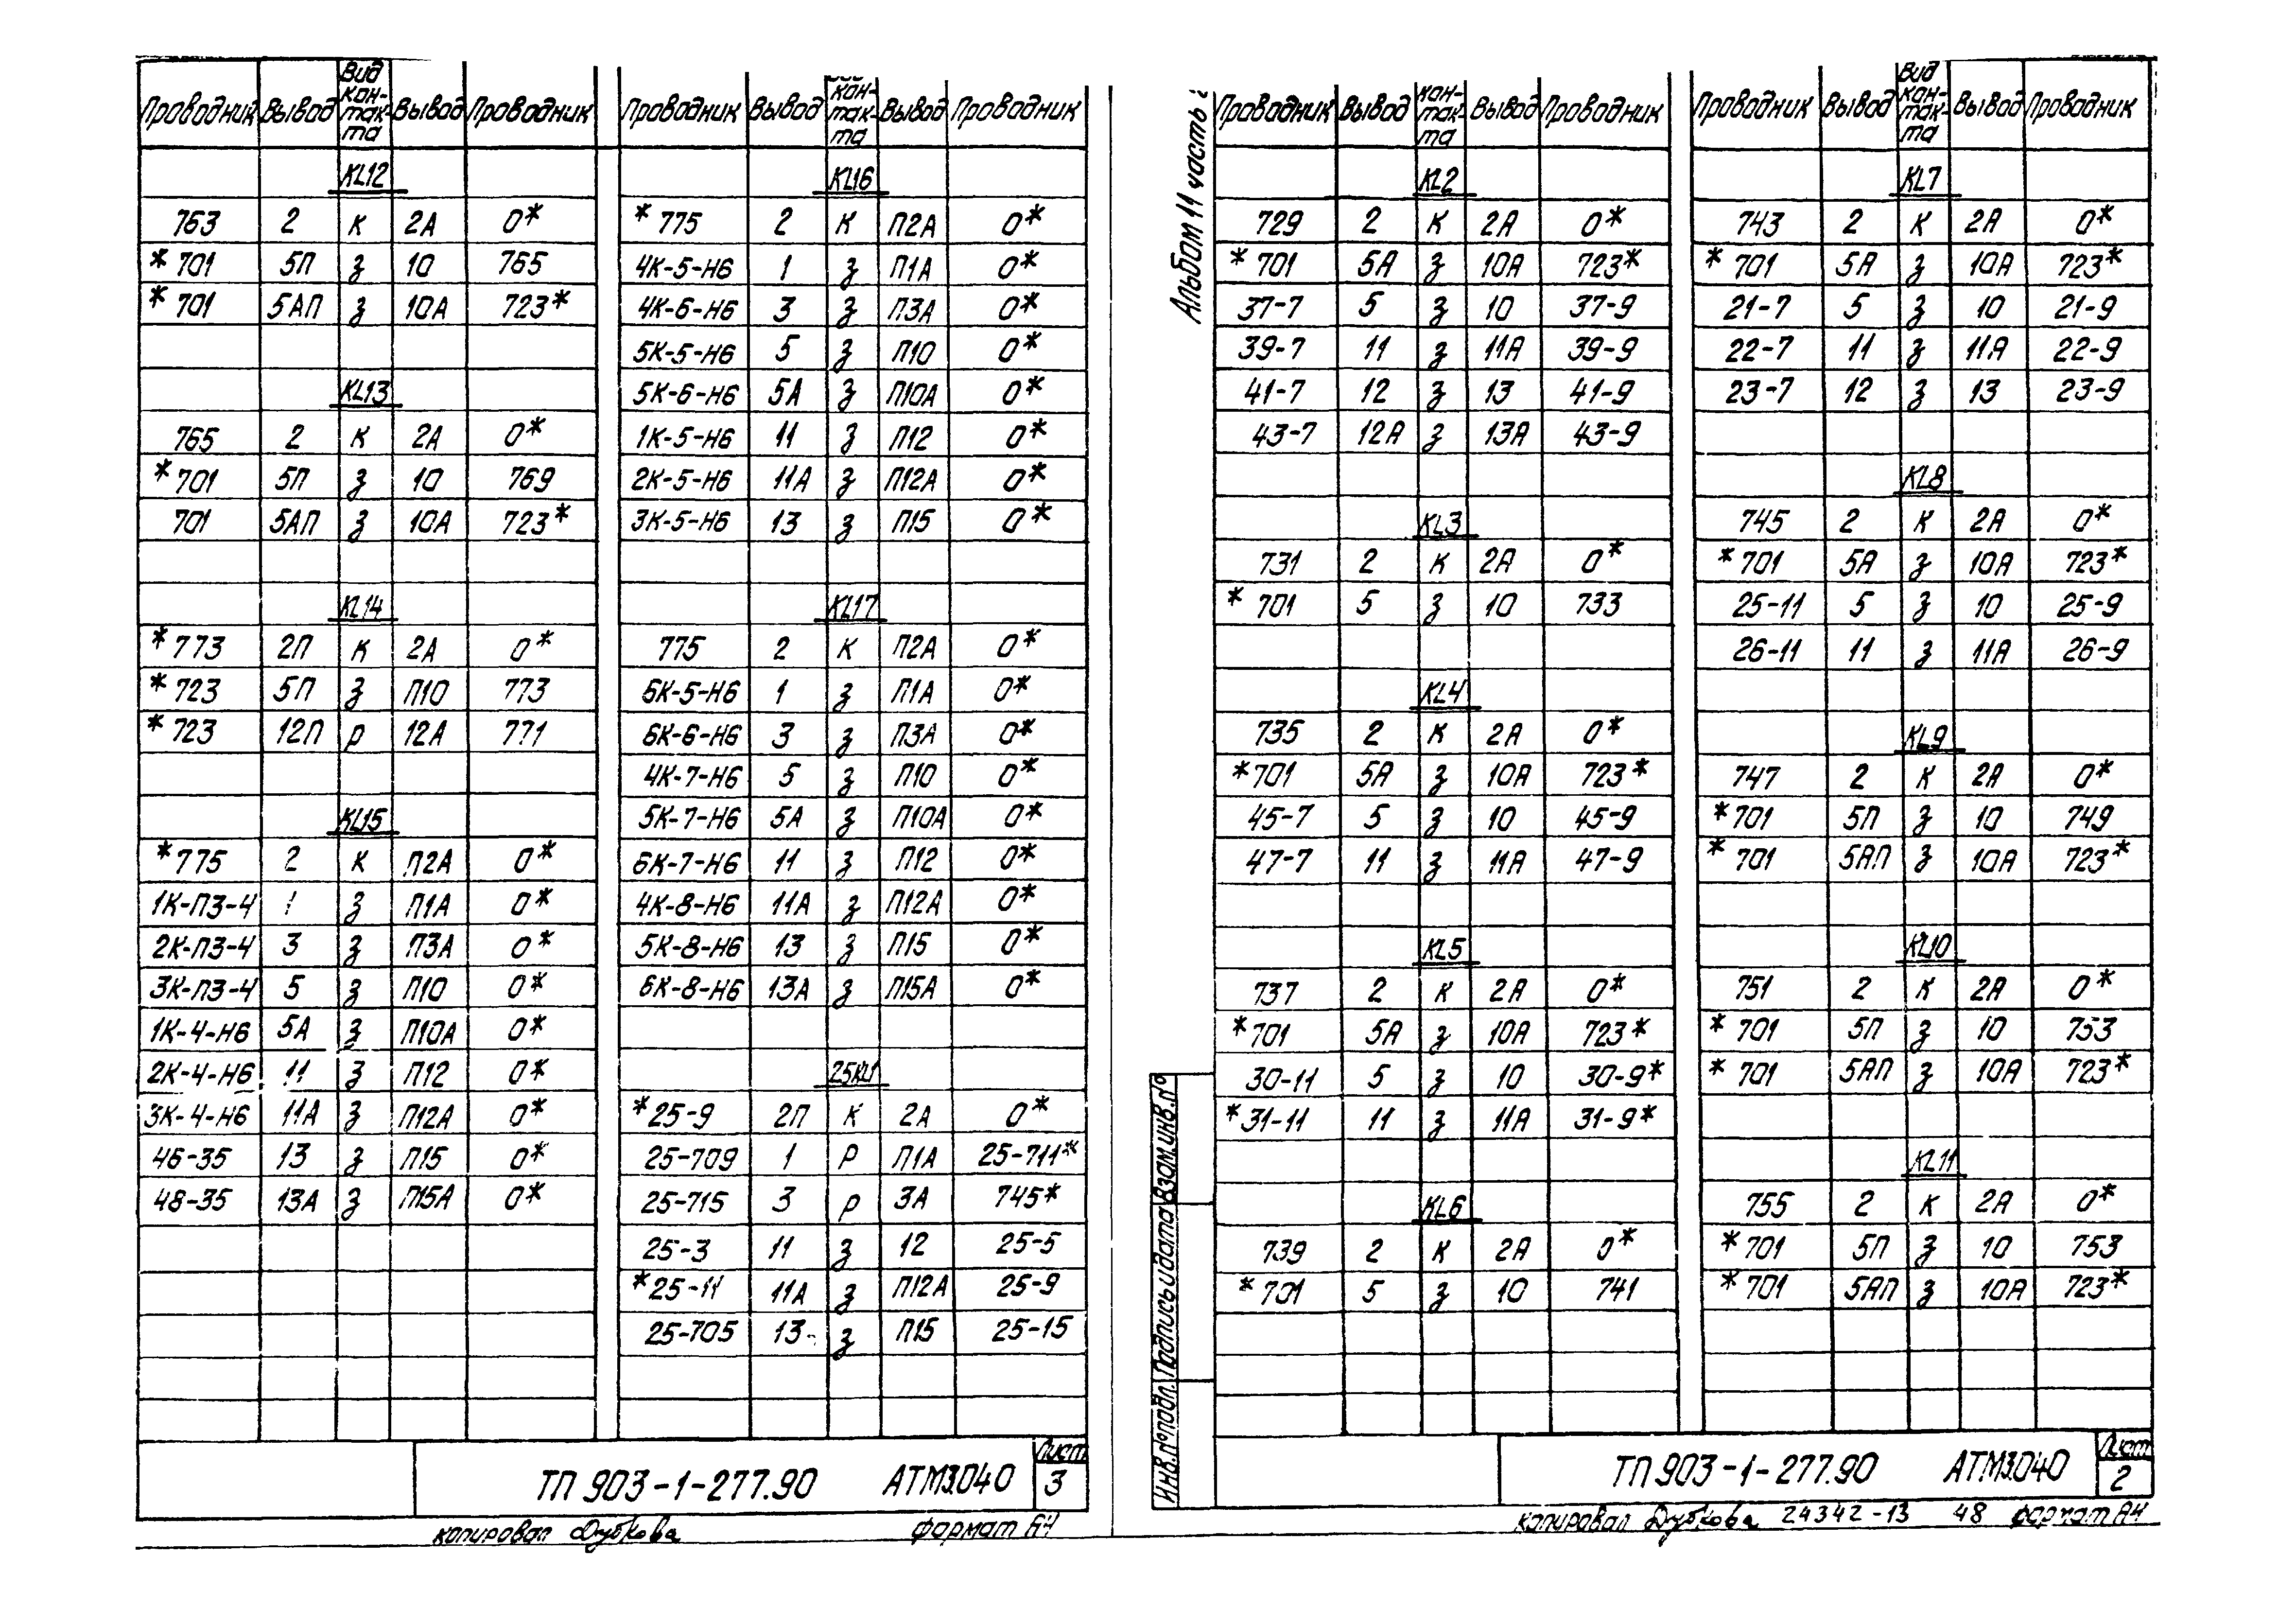 Проводник Вывод Вид кон-так-та Вывод Проводник
KL12
763 2 К 2А 0*
*701 5П З 10 765
*701 5АП З 10А 723*
KL13
765 2 К 2А 0*
*701 5П З 10 769
701 5АП З 10А 723*
KL14
*773 2П К 2А 0*
*723 5П З П10 773
*723 12П Р 12А 771
KL15
*775 2 К П2А 0*
1К-ПЗ-4 1 З П1А 0*
2К-ПЗ-4 3 З П3А 0*
3К-ПЗ-4 5 З П10 0*
1К-4-Н6 5А З П10А 0*
2К-4-Н6 11 З П12 0*
3К-4-Н6 11А З П12А 0*
46-35 13 З П15 0*
48-35 13А З П15А 0*
Проводник Вывод кон-так-та Вывод Проводник
KL16
*775 2 К П2А 0*
4К-5-Н6 1 З П1А 0*
4К-6-Н6 3 З П3А 0*
5К-5-Н6 5 З П10 0*
5К-6-Н6 5А З П10А 0*
1К-5-Н6 11 З П12 0*
2К-5-Н6 11А З П12А 0*
3К-5-Н6 13 З П15 0*
KL17
775 2 К П2А 0*
6К-5-Н6 1 З П1А 0*
6К-6-Н6 3 З П3А 0*
4К-7-Н6 5 З П10 0*
5К-7-Н6 5А З П10А 0*
6К-7-Н6 11 З П12 0*
4К-8-Н6 11А З П12А 0*
5К-8-Н6 13 З П15 0*
6К-8-Н6 13А З П15А 0*
25KL1
*25-9 2П К 2А 0*
25-709 1 Р П1А 25-711*
25-715 3 Р 3А 745*
25-3 11 З 12 25-5
*25-11 11А З П12А 25-9
25-705 13 З П15 25-15
ТП 903-1-277.90 АТМ3.040 Лист 3
копировал Дубкова формат А4
Альбом 11 часть
Проводник Вывод кон-так-та Вывод Проводник
KL2
729 2 К 2А 0*
*701 5А З 10А 723*
37-7 5 З 10 37-9
39-7 11 З 11А 39-9
41-7 12 З 13 41-9
43-7 12А З 13А 43-9
KL3
731 2 К 2А 0*
*701 5 З 10 733
KL4
735 2 К 2А 0*
*701 5А З 10А 723*
45-7 5 З 10 45-9
47-7 11 З 11А 47-9
KL5
737 2 К 2А 0*
*701 5А З 10А 723*
30-11 5 З 10 30-9*
*31-11 11 З 11А 31-9*
KL6
739 2 К 2А 0*
*701 5 З 10 741
Проводник Вывод Вид кон-так-та Вывод Проводник
KL7
743 2 К 2А 0*
*701 5А З 10А 723*
21-7 5 З 10 21-9
22-7 11 З 11А 22-9
23-7 12 З 13 23-9
KL8
745 2 К 2А 0*
*701 5А З 10А 723*
25-11 5 З 10 25-9
26-11 11 З 11А 26-9
KL9
747 2 К 2А 0*
*701 5П З 10 749
*701 5АП З 10А 723*
KL10
751 2 К 2А 0*
*701 5П З 10 753
*701 5АП З 10А 723*
KL11
755 2 К 2А 0*
*701 5П З 10 753
*701 5АП З 10А 723*
Инв.№ подл. Подпись и дата Взам.инв.№
ТП 903-1-277.90 АТМ3.040 Лист 2
копировал Дубкова 24342-13 48 формат А4